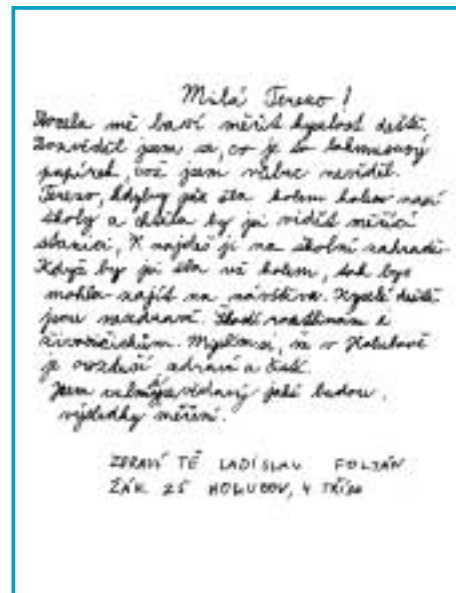 Milá Terezo!
Docela mě baví měřit kyselost deště,
Dozvěděl jsem se, co je to lakmusový
papírek, což jsem vůbec nevěděl.
Terezo, kdyby jsi šla kolem naší
školy a chtěla by jsi vidět měřící
stanici, najdeš ji na školní zahradě.
Když by jsi šla už kolem, tak bys
mohla zajít na návštěvu. Kyselé deště
jsou nezdravé. Škodí rostlinám a
živočichům. Myslím si, že v Holubově
je ovzduší zdravé a čisté.
Jsem velmi zvědavý jaké budou
výsledky měření.
ZDRAVÍ TĚ LADISLAV FOLTÁN
ŽÁK ZŠ HOLUBOV, 4 TŘÍDA